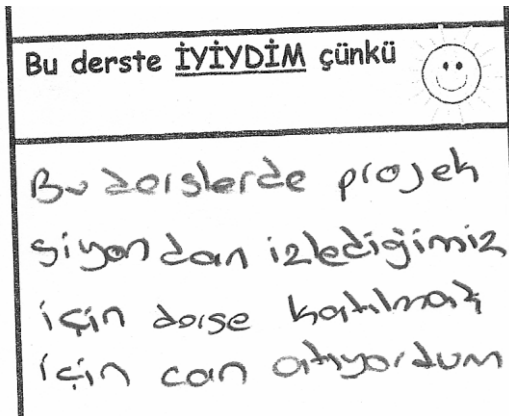 Bu derste İYİYDİM çünkü
Bu derslerde projek
siyondan izlediğimiz
için derse katılmak
için can atıyordum